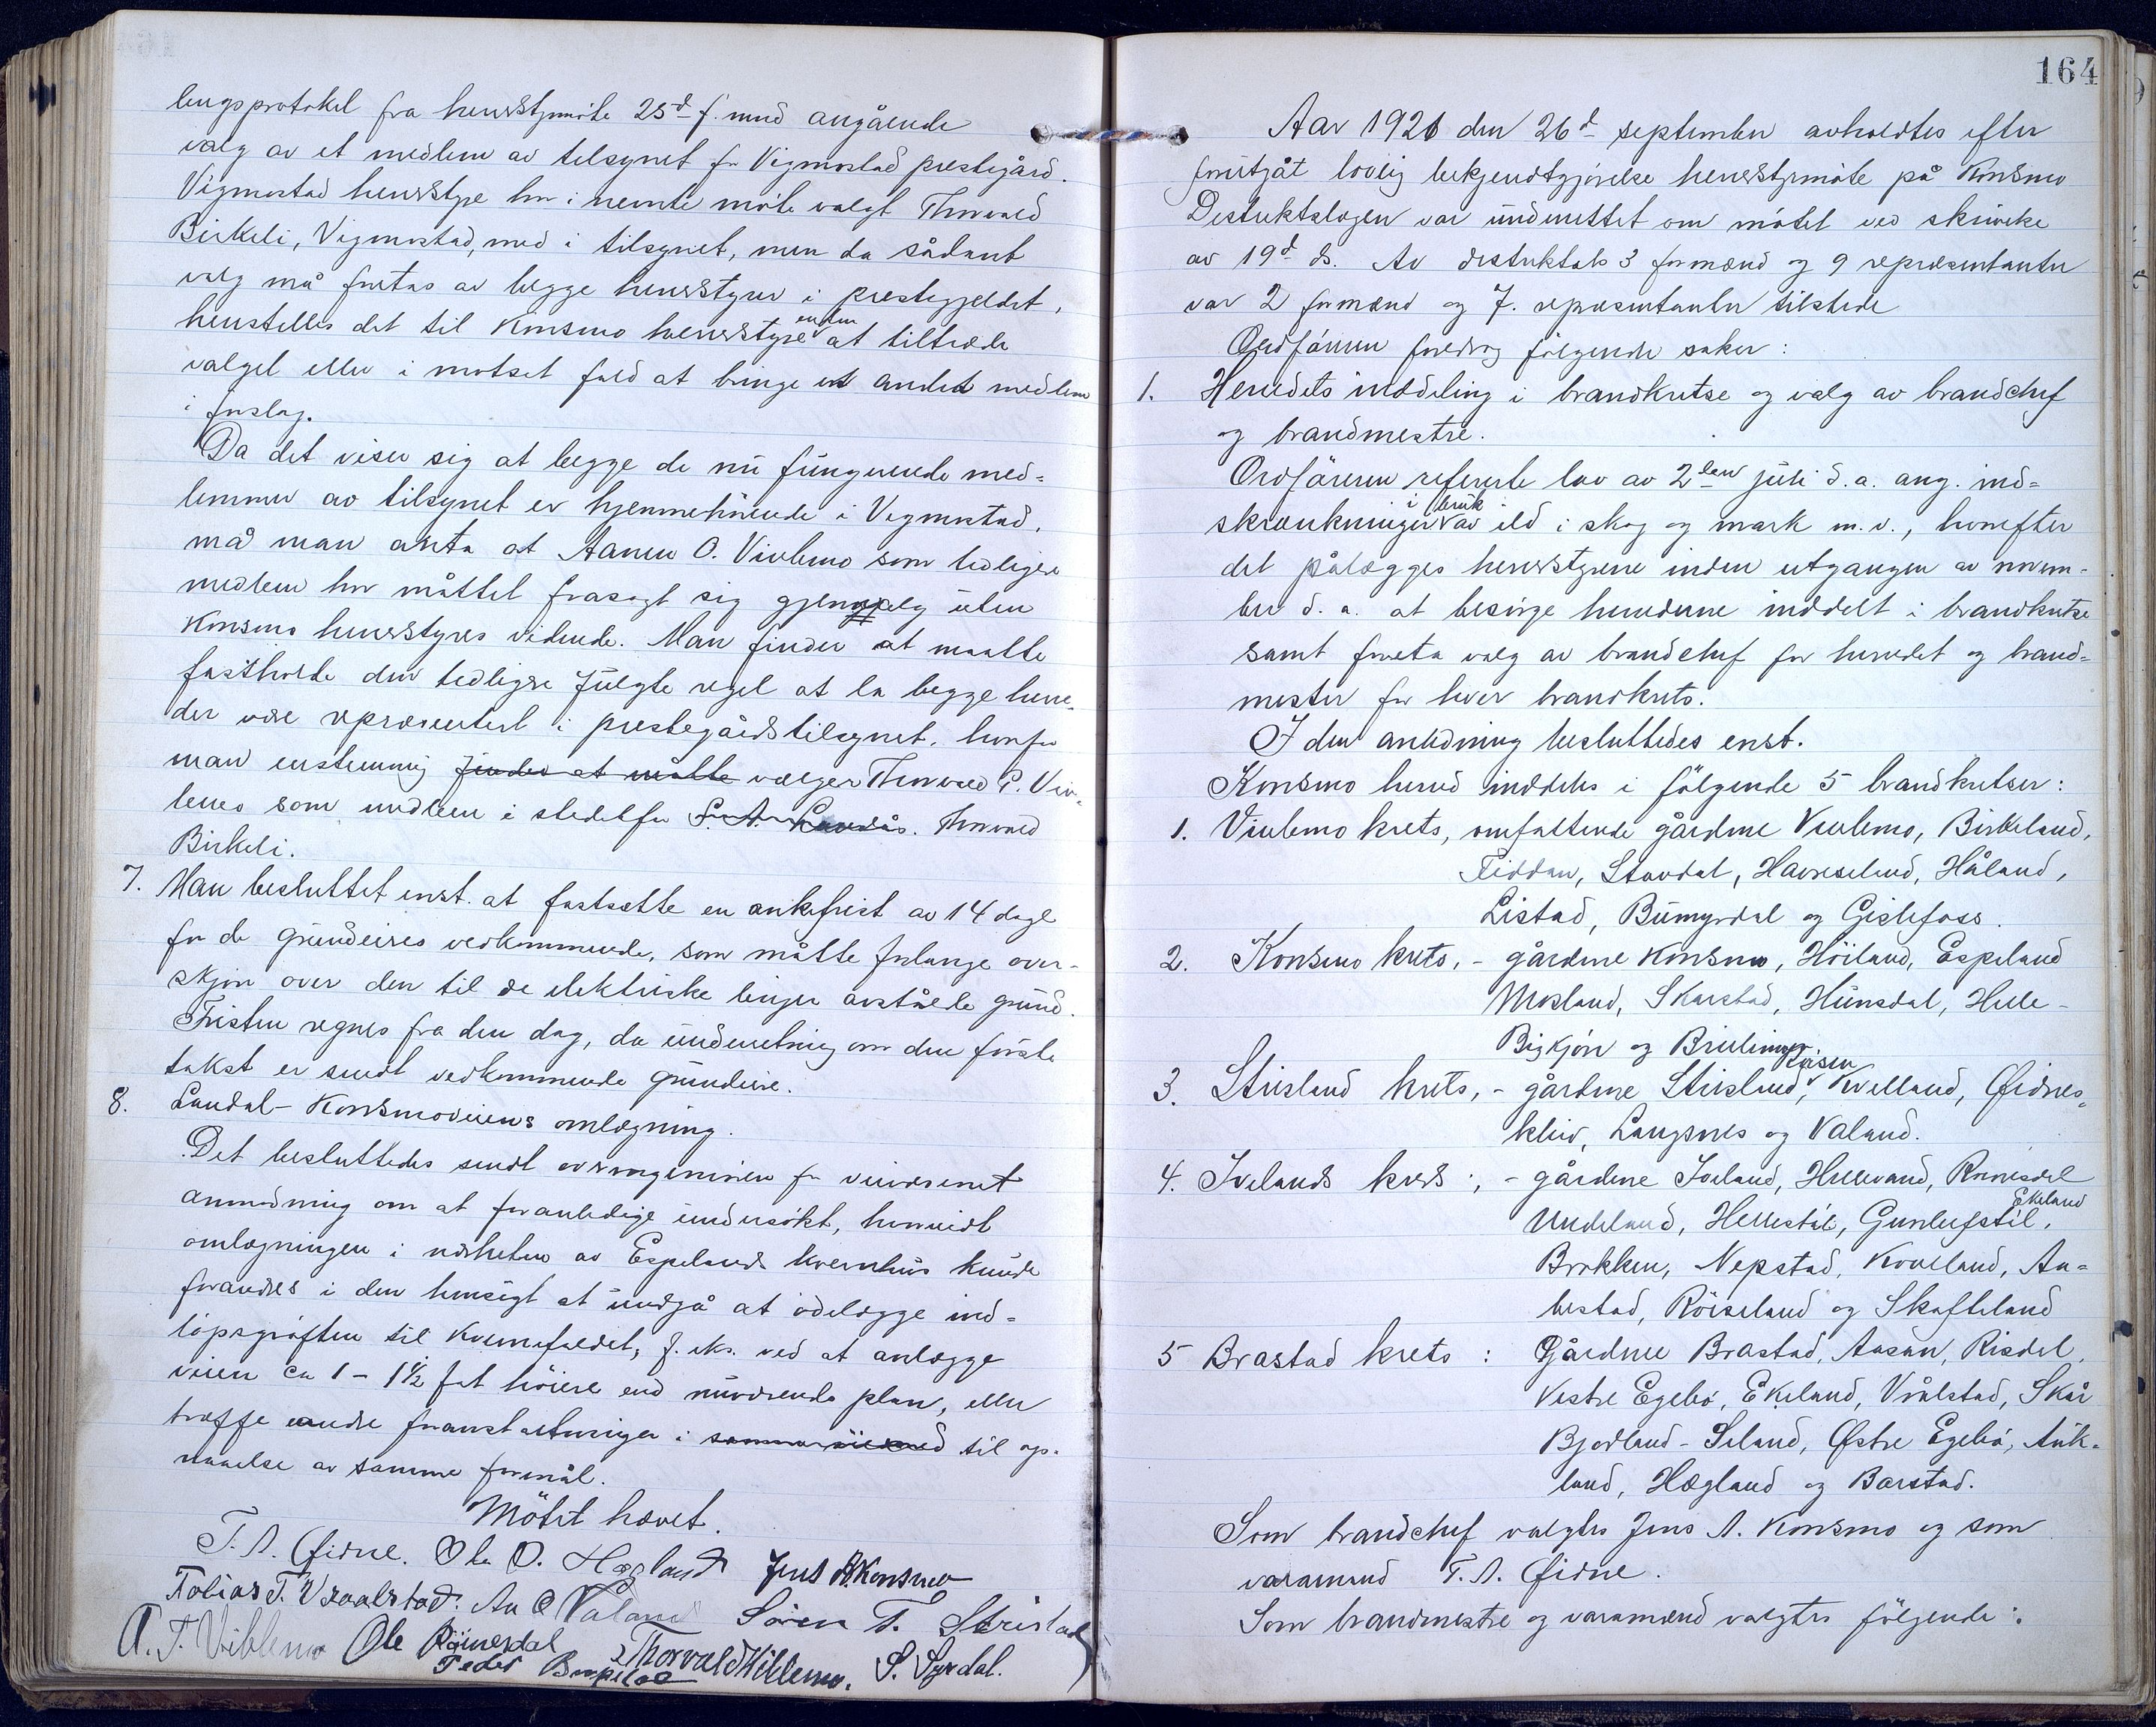 lingsprotokol fra herredstyrmöte 25d f. mnd angående
valg av et medlem av tilsynet for Vigmostad prestegård.
Vigmostad herredstyre har i nevnte möte valgt Thorvald
Birkeli, Vigmostad, med i tilsynet, men da sådant
valg må foretas av begge herredstyrer i prestegjeldet,
henstilles det til Konsmo herredstyre enten at tiltræde
valget eller i motsat fald at bringe et andet medlem
i forslag.
Da det viser sig at begge de nu fungerende med=
lemmer av tilsynet er hjemmehörende i Vigmostad,
må man anta at Aanen O. Viblemo som tidligere
medlem har måttet frasagt sig gjenvalg uten
Konsmo herredstyres vidende. Man finder at maatte
fastholde den tidligere fulgte regel at la begge herre-
der være repræsentert i prestegårdstilsynet, hvorfor
man enstemmig finder at måtte vælger Thorvald G. Vib-
lemo som medlem i stedetfor S. A. Landås. Thorvald
Birkeli.
7. Man besluttet enst. at fastsætte en ankefrist av 14 dage
for de grundeieres vedkommende, som måtte forlange over-
skjön over den til de elektriske linjer avståtte grund.
Fristen regnes fra den dag, da underretning om den förste
takst er sendt vedkommende grundeiere.
8. Laudal-Konsmoveiens omlægning.
Det besluttedes sendt avd.ingeniören for veivæsenet
anmodning om at foranledige undersökt, hvorvidt
omlægningen i nærheten av Espelands kvernhus kunde
forandres i den hensigt at undgå at ödelægge ind=
löpsgröften til kvernefaldet, f. eks. ved at anlægge
veien ca 1 - 1½ fot höiere end nuværende plan, eller
træffe andre foranstaltninger i samme öiemed til op-
naaelse av samme formål.
Mötet hævet.
T. A. Øidne. Ole O. Hægland Jens A. Konsmo
Tobias T. Vraalstad. An O Valand Sören T. Stirisland
A. T. Viblemo Ole Röinesdal Thorvald Viblemo. S. Syrdal.
Peder
164
Aar 1926 den 26d september avholdtes efter
forutgåt lovlig bekjendtgjörelse herredstyrmöte på Konsmo
Distriktslægen var underrettet om mötet ved skrivelse
av 19d ds. Av distriktets 3 formænd og 9 repræsentanter
var 2 formænd og 7. repræsentanter tilstede
Ordföreren foredrog fölgende saker:
1. Herredets inddeling i brandkretse og valg av brandchef
og brandmestre.
Ordföreren refererte lov av 2den juli d.a. ang. ind=
skrænkninger i bruk av ild i skog og mark m.v., hvorefter
det pålægges herredstyrene inden utgangen av novem-
ber d.a. at besörge herrederne inddelt i brandkretse
samt foreta valg av brandchef for herredet og brand=
mester for hver brandkrets.
I den anledning besluttedes enst.
Konsmo herred inddeles i fölgende 5 brandkretser:
1. Viblemo krets, omfattende gårdene Viblemo, Birkeland,
Fiddan, Stavdal, Haureselind, Håland,
Listad, Bumyrdal og Gislefoss.
2. Konsmo krets, - gårdene Konsmo, Höiland, Espeland
Mosland, Skarstad, Hunsdal, Helle-
Bigkjön og Brulimo
3. Stirisland krets, - gårdene Stirisland, Röisen Kvelland, Øidnes-
kleiv, Langsnes og Valand.
4. Ivelands kreds:, - gårdene Iveland, Hellevand, Röinesdal
Undeland, Hellestöl, Gunleifstöl, Ekeland
Brokken, Nepstad, Kvaeland, An-
bestad, Röiseland og Skofteland
5 Brastad krets : Gårdene Brastad, Aasan, Risdal,
Vestre Egebö, Ekeland, Vrålstad, Skår
Bjorland-Seland, Østre Egebö, Auk-
land, Hægland og Barstad.
Som brandchef valgtes Jens A. Konsmo og som
varamand T. A. Øidne.
Som brandmestre og varamænd valgtes fölgende: